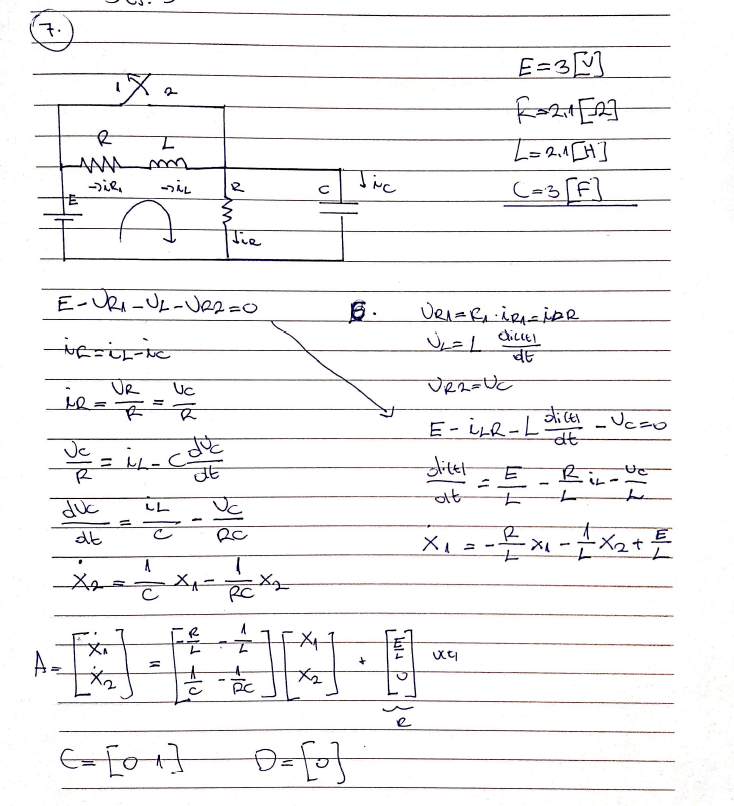 7.
E=3[V]
R=2.1[Ω]
L=2.1[H]
C=3[F]
1 2
R L
→iR₁ →iL
E
R
↓iR
C
↓iC
E-UR₁-UL-UR2=0
iR=iL-iC
iR=UR/R=UC/R
UC/R=iL-C dUC/dt
dUC/dt=iL/C-UC/RC
ẋ₂=1/C x₁-1/RC x₂
UR1=R₁·iR1=
UL=L di(t)/dt
UR2=UC
E-iLR-L di(t)/dt-UC=0
di(t)/dt=E/L-R/L iL-UC/L
ẋ₁=-R/L x₁-1/L x₂+E/L
A=[ẋ₁ ẋ₂]=[-R/L -1/L 1/C -1/RC][x₁ x₂]+[E/L 0]
C=[0 1] D=[0]